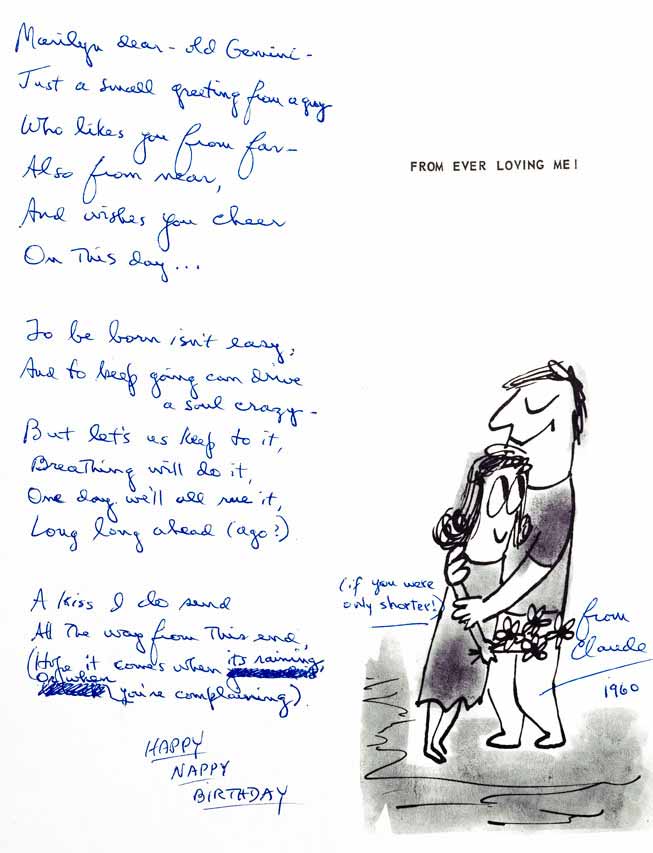 Marilyn dear - old Gemini -
Just a small greeting from a guy
Who likes you from far -
Also from near,
And wishes you cheer
On This day...
To be born isn't easy,
And to keep going can drive
a soul crazy -
But let's us keep to it,
Breathing will do it,
One day we'll all rue it,
Long long ahead (ago?)
A kiss I do send
All The way from This end,
(Hope it comes when its raining,
Or when you're complaining)
HAPPY
NAPPY
BIRTHDAY
FROM EVER LOVING ME!
(if you were
only shorter!)
from
Claude
1960